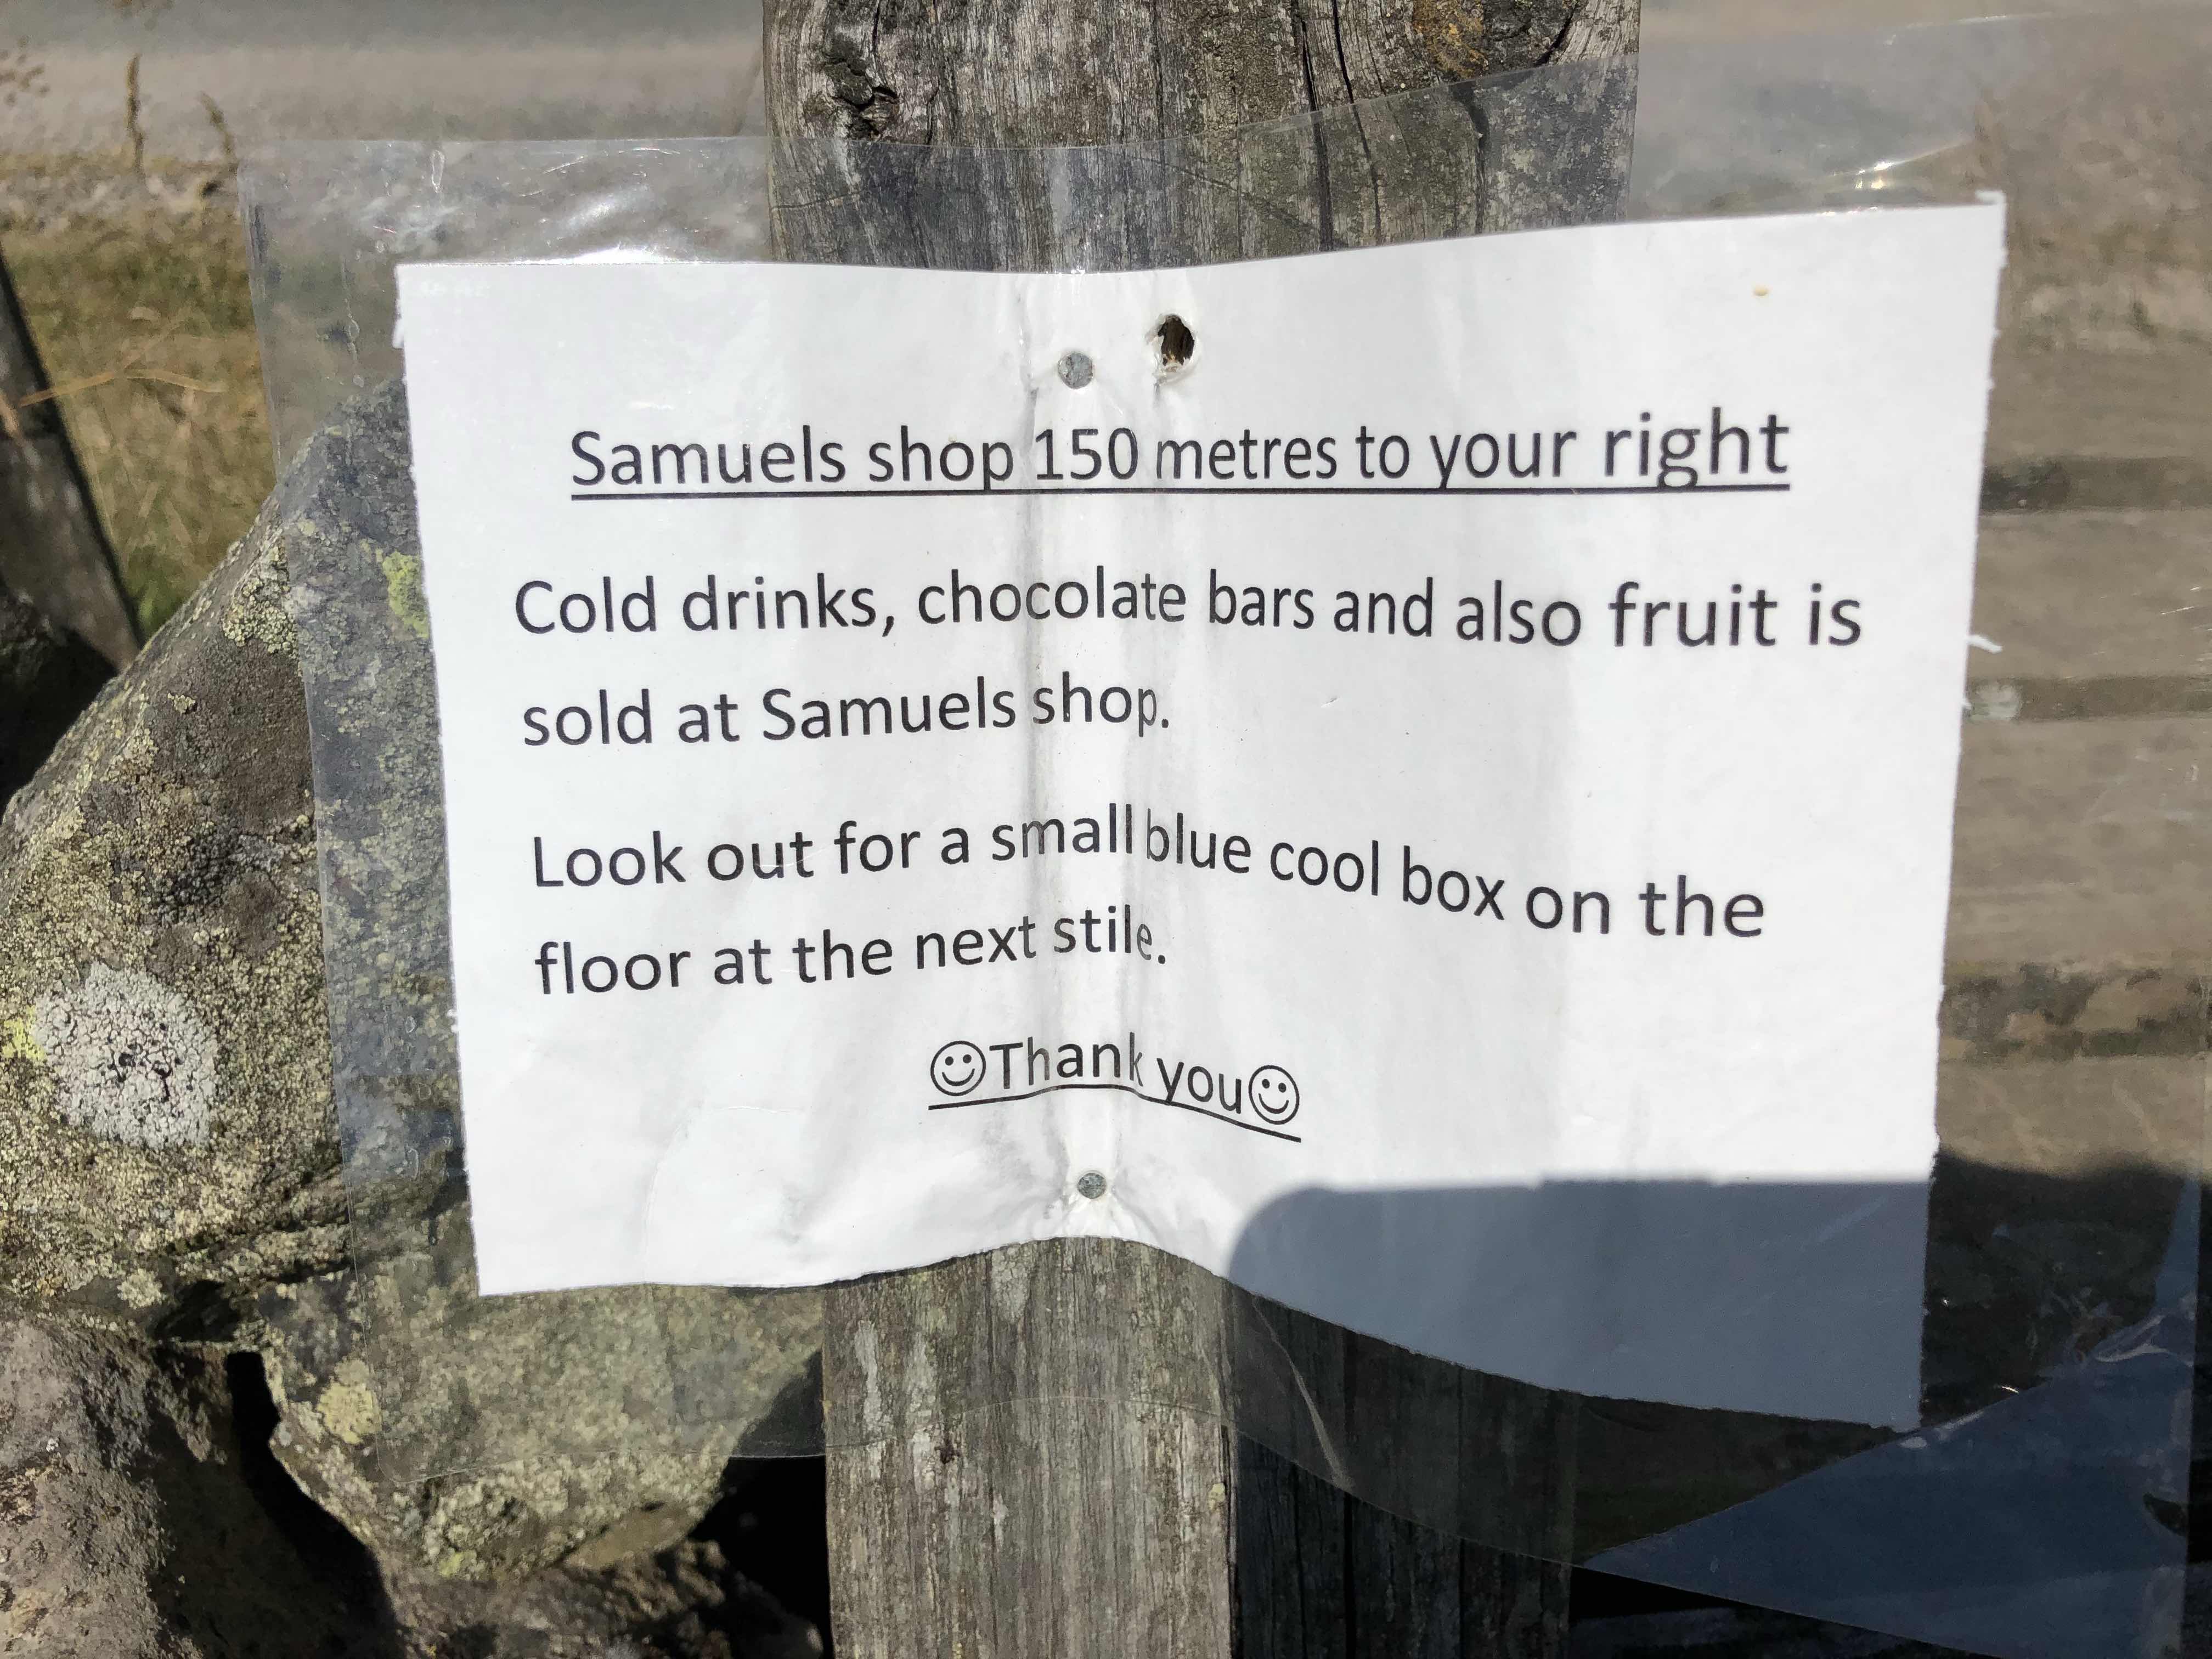 Samuels shop 150 metres to your right
Cold drinks, chocolate bars and also fruit is
sold at Samuels shop.
Look out for a small blue cool box on the
floor at the next stile.
☺Thank you☺